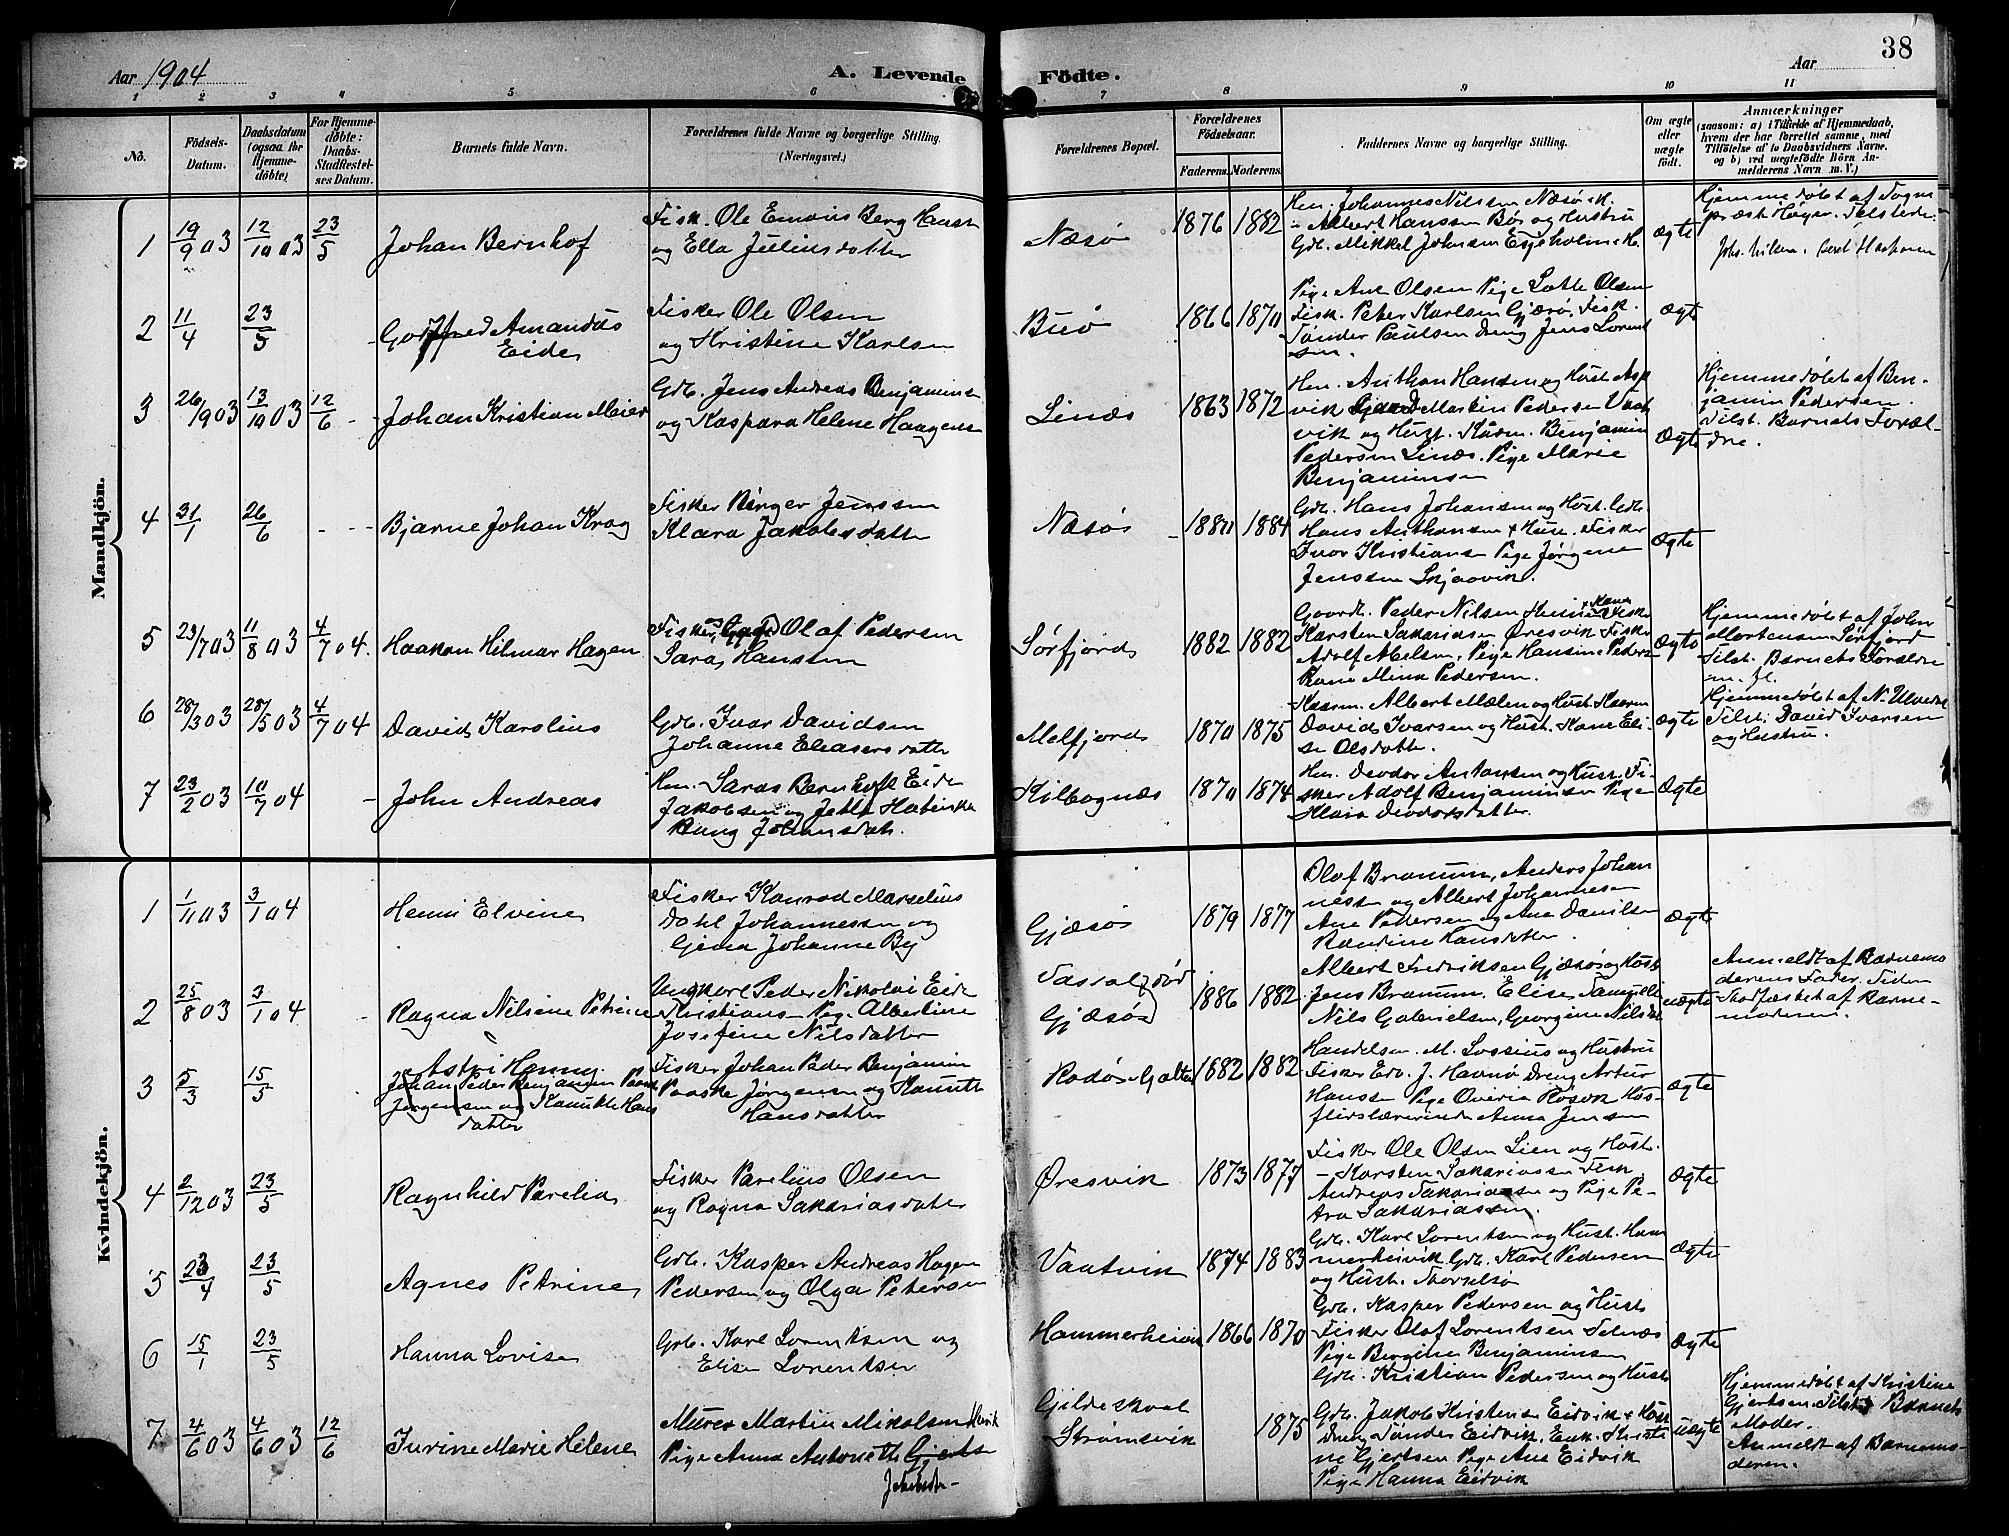 38
Aar 1904
A. Levende Födte.
Aar
1 2 3 4 5 6 7 8 9 10 11
No.
Födsels-Datum.
Daabsdatum (ogsaa for Hjemmedöbte)
For Hjemmedöbte: Daabs-Stadfæstelses Datum.
Barnets fulde Navn.
Forældrenes fulde Navne og borgerlige Stilling. (Næringsvei.)
Forældrenes Bopæl.
Forældrenes Födselsaar.
Faderens. Moderens.
Faddernes Navne og borgerlige Stilling.
Om ægte eller uægte födt.
Anmærkninger
(saasom: a) i Tilfælde af Hjemmedaab, hvem der har forrettet samme, med Tilföielse af to Daabsvidners Navne, og b) ved uægtefödte Börn Anmelderens Navn m. V.)
Mandkjön.
1 19/9 03 12/10 03 23/5 Johan Bernhof
Fisk. Ole Emaius Berg Hansen
og Ella Juliusdatter
Næsø 1876 1882
Hm. Johannes Nilsen Næsø
Albert Hanssen Bø og Hustru
Gdb. Mikkel Johnsen Esgeholm
Ægte
Hjemmedøbt af Sogne
præst Høyer. Tilstede:
2 11/4 23/5 Gottfred Amandus
Eide
Fisker Ole Olsen
og Kristine Karlsen
Buø 1866 1870
Pige Ane Olsen Pige Lotte Olsen
Fisk. Peter Karlsen Gjærø, Fisk.
Tønder Paulsen Dreng Jens Lorent
sen.
Ægte
3 26/9 03 13/10 03 12/6 Johan Kristian Meier
Gdb. Jens Andreas Benjaminse
og Kaspara Helene Haagens
Linæs 1863 1872
Hm. Anthon Hansen og Hust. Asp
vik Martin Pedersen Vaat
vik og Hust. Benjamin
Pedersen Linæs. Pige Marie
Benjaminsen
Ægte
Hjemmedøbt af Ben-
jamin Pedersen.
Tilst. Barnets Foræl-
dre.
4 31/1 26/6 Bjarne Johan Krog
Fisker Birger Jenssen
Klara Jakobsdatter
Næsø 1880 1884
Gdb. Hans Johansen og Hust. Gdb.
Hans Anthonsen + Hust. Fisker
Ivar Kristiansen Pige Jørgine
Jenssen Skjaavik.
Ægte
5 23/7 03 11/8 03 4/7 04. Haakon Hilmar Hagen
Fisker Olaf Pedersen
Sara Hanssen
Sørfjord 1882 1882
Gaardb. Peder Nilsen
Karsten Sakariasen Øresvik Fisker
Adolf Nilsen, Pige Hansine Peders
Kone Mina Pedersen.
Ægte
Hjemmedøbt af John
Mortensen Sørfjord
Tilst. Barnets Forældre
m. fl.
6 28/3 03 28/5 03 4/7 04 David Karolius
Gdb. Ivar Davidsen
Johanne Eleasersdatte
Melfjord 1870 1875
Kaarm. Albert Mælen og Hust. Kaarm
David Ivarsen og Hust. Kone Eli-
se Olsdatte.
Ægte
Hjemmedøbt af N. Ulvedal
Tilst. David Ivarsen
og Hustru.
7 23/2 03 10/7 04 John Andreas
Hm. Saras Bernhoft Eide
Jakobsen og Jette
Bang Johansdatt.
Kilbognæs 1870 1874
Hm. Deodor Antonsen og Hust. Fi-
sker Adolf Benjaminsen Pige
Klara Deodorsdatter.
Ægte
Kvindekjön.
1 1/11 03 3/1 04 Henni Elvine
Fisker Konrad Marselius
Dahl Johannessen og
Gjena Johanne By
Gjæsø 1879 1877
Olaf Bramum, Anders Johan
nessen og Albert Johannesen
Ane Pedersen og Ane Danilsen
Randine Hansdatter.
Ægte
2 25/8 03 3/1 04 Ragna Nilsine Petrine
Ungkarl Peder Nikolai Eide
Kristians. Pige Albertine
Josefine Nilsdatter
Gjæsø 1886 1882
Albert Fredriksen Gjæsø og Hust.
Jens Bramum, Elise Samuels
Nils Gabrielsen, Georgine Nilsdt
uægte
Anmeldt af Barnemo
derens Fader. Siden
Stadfæstet af Barne-
moderen.
3 5/3 15/5 Astri Hanny
Johan Peder Benjamin Paask
Jørgensen og Kanutte Hans
datter
Fisker Johan Peder Benjamin
Paaske Jørgensen og Kanutte
Hansdatter
Rødø-Gjælten 1882 1882
Handelsm. M. Lossius og Hustru
Fisker Edv. J. Havnø Dreng Artur
Hansen Pige Overia Rosvk Hus-
flidslærerinde Anna Jensen
Ægte
4 2/12 03 23/5 Ragnhild Parelia
Fisker Parelius Olsen
og Ragna Sakariasdatter
Øresvik 1873 1877
Fisker Ole Olsen Lien og Hust.
- Karsten Sakariassen Fisk.
Andreas Sakariassen og Pige Pe-
tra Sakariassen.
Ægte
5 23/4 23/5 Agnes Petrine
Gdb. Kasper Andreas Hagen
Pedersen og Olga Petersen
Vaatvik 1874 1883
Gdb. Karl Lorentsen og Hust. Ham
merheivik. Gdb. Karl Pedersen
og Hust. Storselsø
Ægte
6 15/1 23/5 Hanna Lovise
Gdb. Karl Lorentsen og
Elise Lorentsen
Hammerheivik 1866 1870
Gdb. Kasper Pedersen og Hust
Fisker Olaf Lorentsen Selnæs
Pige Bergine Benjaminsen
Gdb. Kristian Pedersen og Hust
Ægte
7 4/6 03 4/6 03 12/6 Jurine Marie Helene
Murer Martin Mikalsen
Pige Anna Antonette Gjerts
Gildeskaal
Strømsvik 1875
Gdb. Jakob Kristensen Eidvik + Hust
Dreng Tønder Eidvik, Enk. Kristi
ne Gjertsen Pige Ane Eidvik
Pige Hanna Eidvik
uægte
Hjemmedøbt af Kristine
Gjertsen Tilst. Barnets
Moder.
Anmeldt af Barnemo-
deren.